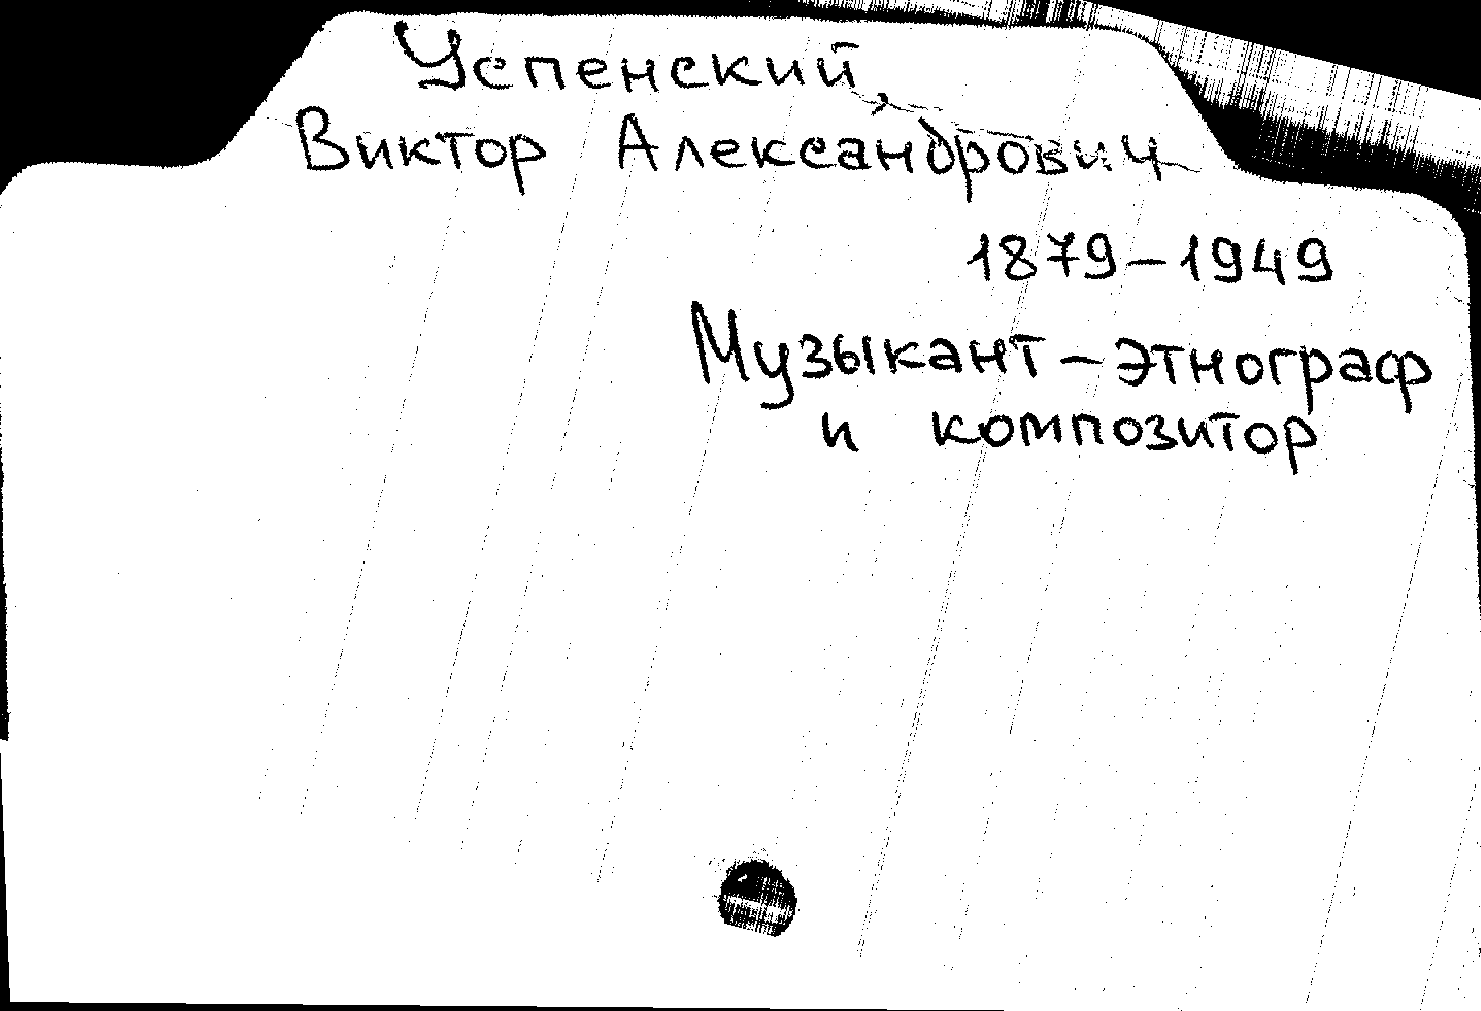 Успенский,
Виктор Александрович
1879–1949
Музыкант – этнограф
и композитор